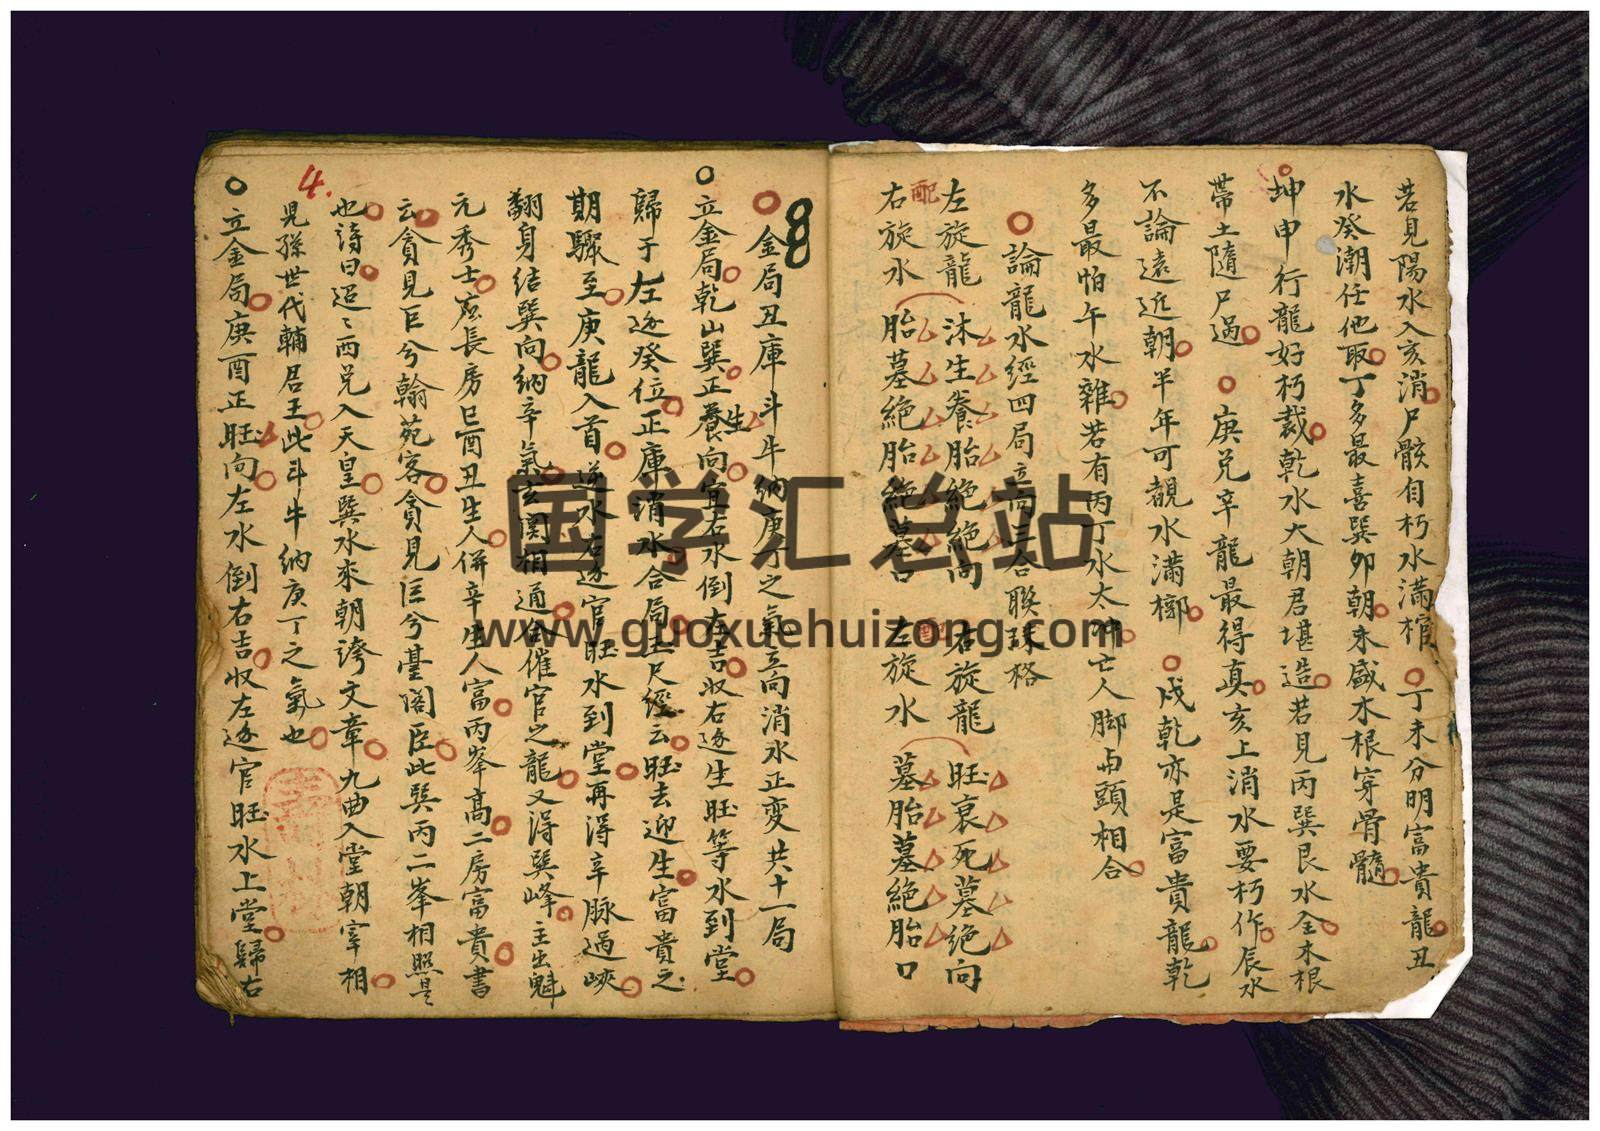 若見陽水入亥消尸骸自朽水滿棺○丁未分明富貴龍丑
水癸潮任他取丁多最喜巽卯朝来盛木根穿骨髓
坤申行龍好朽裁乾水大朝君堪造若見丙巽艮水全木根
帶土隨尸過○庚兑辛龍最得真亥上消水要朽作辰水
不論遠近朝半年可覩水滿槨○戍乾亦是富貴龍乾
多最怕午水雜若有丙丁水太冲亡人脚与頭相合
○論龍水經四局立向三合聯珠格
左旋龍 沐生養胎絶絶向 右旋龍 旺衰死墓絶向
配
右旋水 胎墓絶胎絶墓口 左旋水 墓胎墓絶胎口
配
8
○金局丑庫斗牛納庚丁之氣立向消水正变共十一局
○立金局乾山巽正養向宜右水倒左吉收右逐生旺等水到堂
生
歸于左逐癸位正庫消水合局玉尺經云旺去迎生富貴之
期驟至庚龍入首逆水右逐官旺水到堂再得辛脉過峽
翻身結巽向納辛氣玄関相通合催官之龍又得巽峰主出魁
元秀士应長房巳酉丑生人併辛生人富丙峯高二房富貴書
云貪見巨兮翰苑客貪見巨兮臺閣臣此巽丙二峯相照是
也詩曰迢〻西兑入天皇巽水來朝誇文章九曲入堂朝宰相
4.
児孫世代輔君王此斗牛納庚丁之氣也
○立金局庚酉正旺向左水倒右吉收左逐官旺水上堂歸右
国学汇总站
www.guoxuehuizong.com